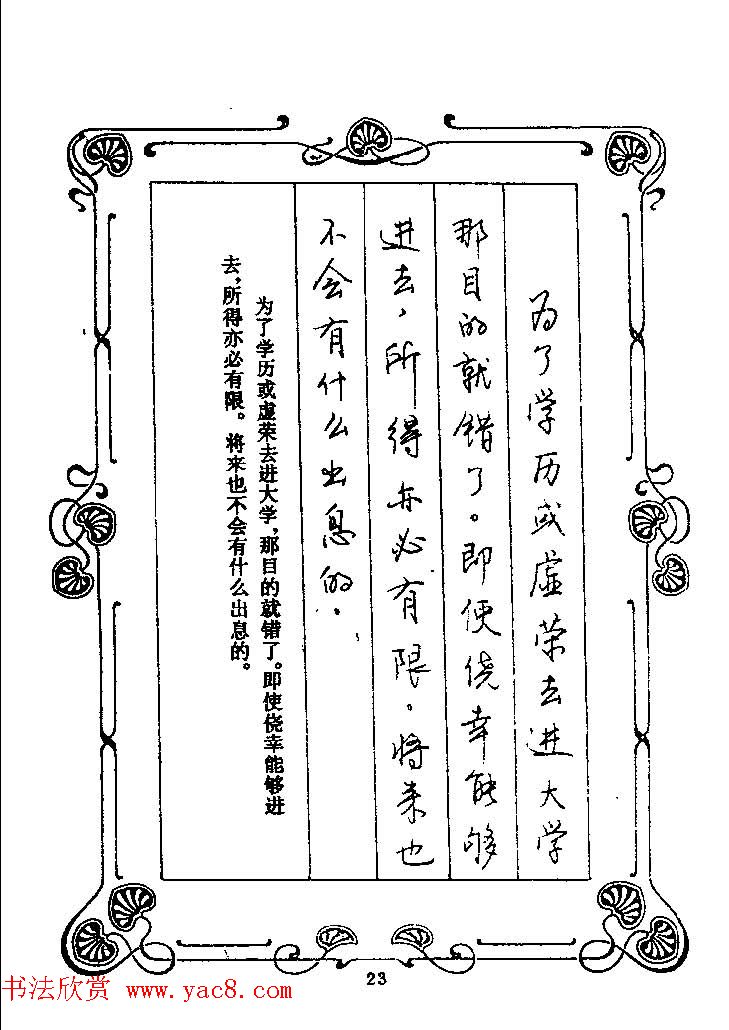 为了学历或虚荣去进大学
那目的就错了。即便侥幸能够
进去，所得亦必有限。将来也
不会有什么出息的。
为了学历或虚荣去进大学，那目的就错了。即使侥幸能够进
去，所得亦必有限。将来也不会有什么出息的。
23
书法欣赏 www.yac8.com